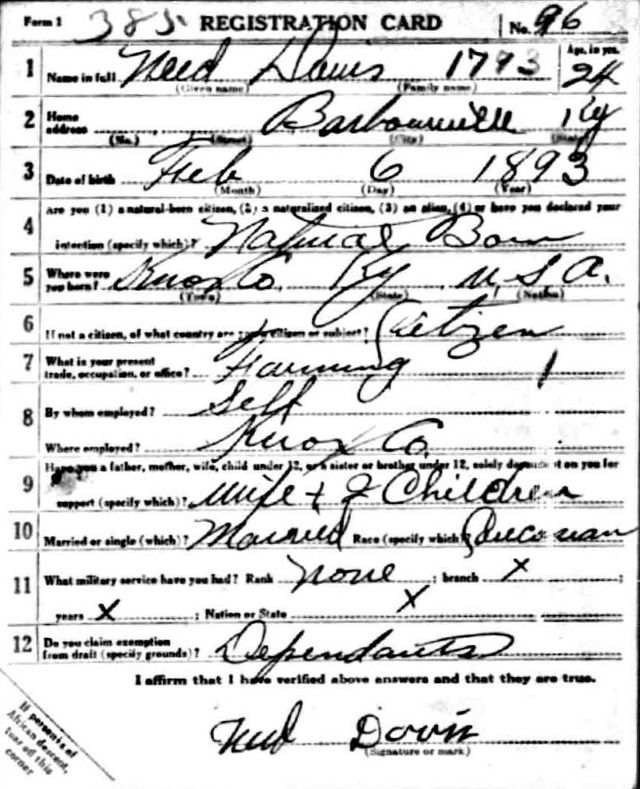 Form 1 385 REGISTRATION CARD No. 96
1 Name in full Need Davis 1793 Age, in yrs. 24
(Given name) (Family name)
2 Home address Barbourville Ky
(No.) (Street) (City) (State)
3 Date of birth Feb 6 1893
(Month) (Day) (Year)
Are you (1) a natural-born citizen, (2) a naturalized citizen, (3) an alien, (4) or have you declared your
4 intention (specify which)? Natural Born
5 Where were you born? Knox Co. Ky U.S.A.
(Town) (State) (Nation)
6 If not a citizen, of what country are you a citizen or subject? Citizen
7 What is your present trade, occupation, or office? Farming 1
8 By whom employed? Self
Where employed? Knox Co.
Have you a father, mother, wife, child under 12, or a sister or brother under 12, solely dependent on you for
9 support (specify which)? Wife + 2 Children
10 Married or single (which)? Married Race (specify which)?
11 What military service have you had? Rank None ; branch X ;
years X ; Nation or State X
12 Do you claim exemption from draft (specify grounds)? Dependants
I affirm that I have verified above answers and that they are true.
Davis
(Signature or mark)
If person is of
African descent,
tear off this
corner